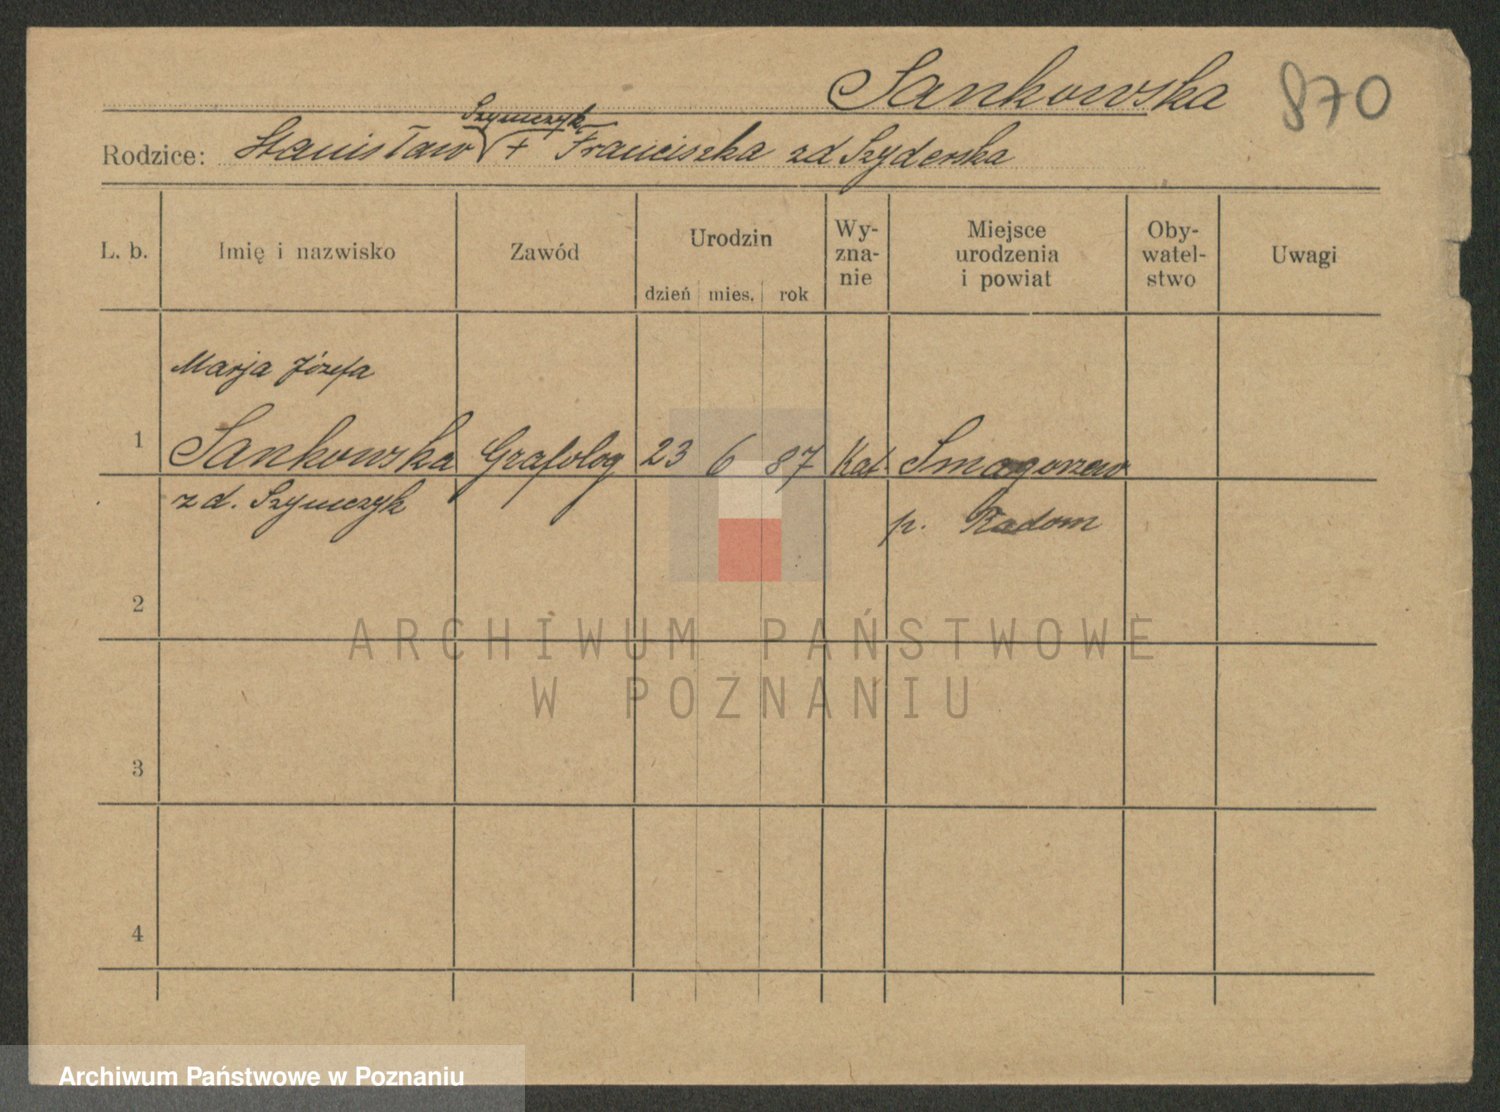 Sankowska 870
Szymczyk
Rodzice: Stanisław + Franciszka zd Szyderska
L. b. Imię i nazwisko Zawód Urodzin Wy-zna-nie Miejsce urodzenia i powiat Oby-watel-stwo Uwagi
dzień mies. rok
Marja Józefa
1 Sankowska Grafolog 23 6 87 Kat. Smogorzew
zd. Szymczyk p. Radom
2
ARCHIWUM PAŃSTWOWE
W POZNANIU
3
4
Archiwum Państwowe w Poznaniu